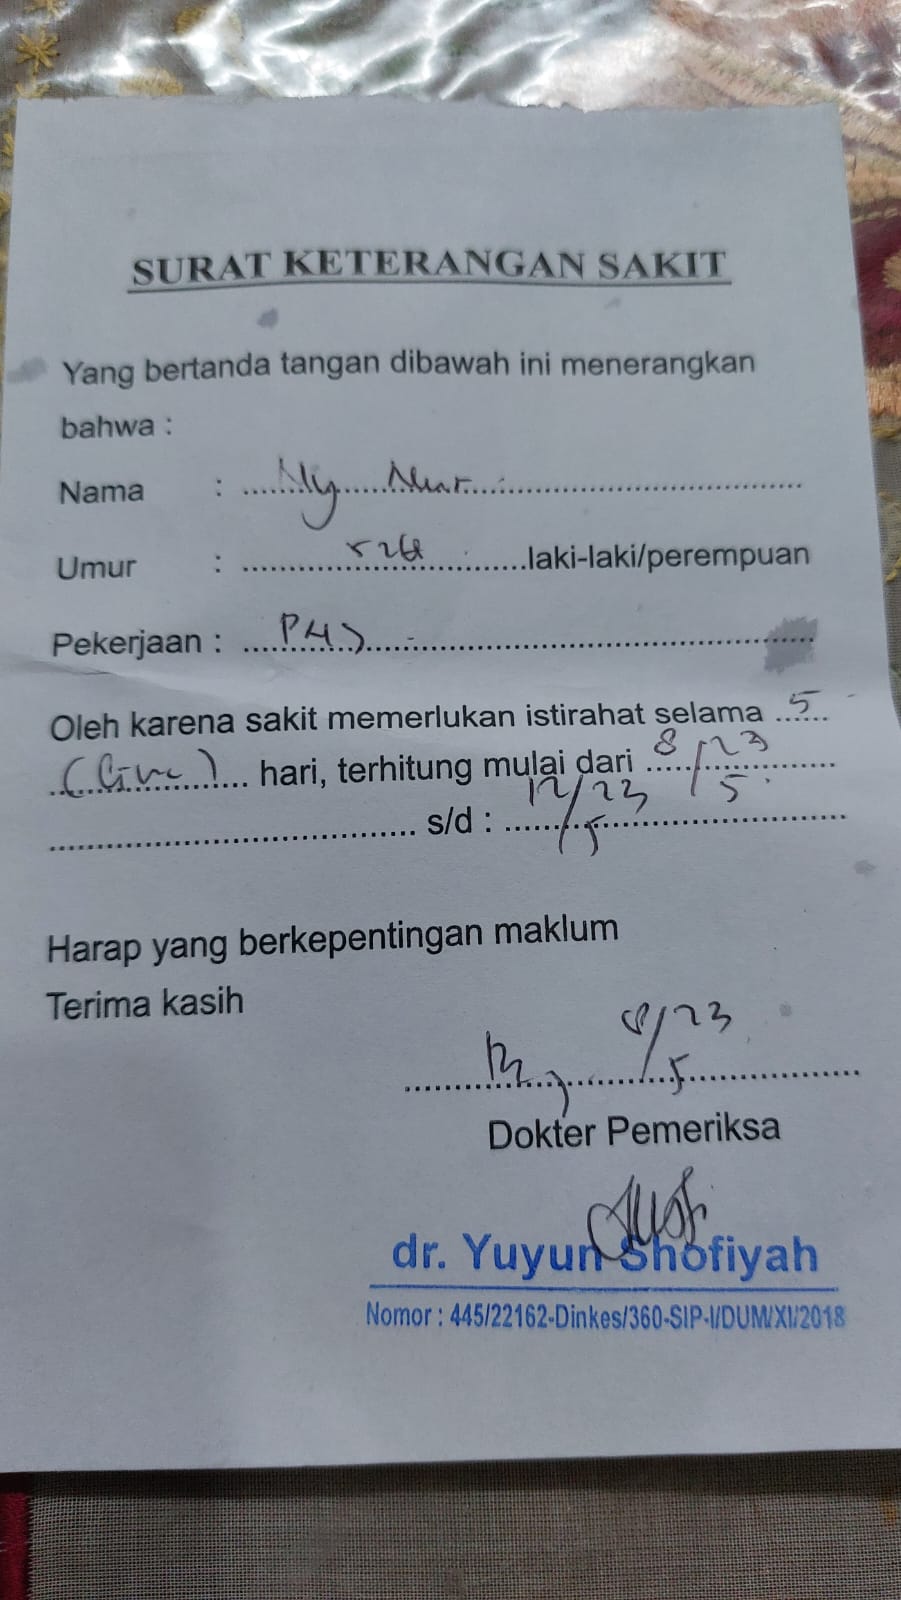 SURAT KETERANGAN SAKIT
Yang bertanda tangan dibawah ini menerangkan
bahwa :
Nama : Ny Nur
Umur : laki-laki/perempuan
Pekerjaan : PNS
Oleh karena sakit memerlukan istirahat selama 5
(Lima) hari, terhitung mulai dari 8/5 23
s/d : 12/5 23
Harap yang berkepentingan maklum
Terima kasih
8/5 23
Dokter Pemeriksa
dr. Yuyun Shofiyah
Nomor : 445/22162-Dinkes/360-SIP-I/DUM/XI/2018